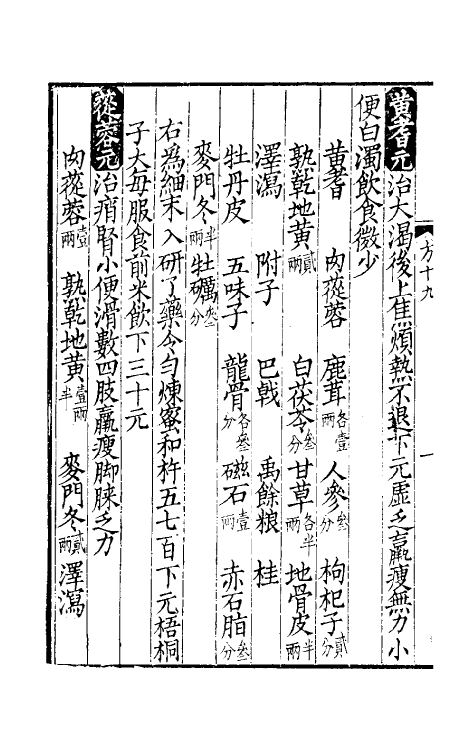 方十九　一
黃耆元治大渴後上焦煩熱不退下元虛乏羸瘦無力小
便白濁飲食微少
黃耆　肉蓯蓉　鹿茸各壹兩　人參叁分　枸杞子貳分
熟乾地黃貳兩　白茯苓叁分　甘草各半兩　地骨皮半兩
澤瀉　附子　巴戟　禹餘粮　桂
牡丹皮　五味子　龍骨各叁分　磁石壹兩　赤石脂叁分
麥門冬半兩　牡礪叁分
右爲細末入研了藥令勻煉蜜和杵五七百下元梧桐
子大每服食前米飲下三十元
蓯蓉元治痟腎小便滑數四肢羸瘦脚膝乏力
肉蓯蓉壹兩　熟乾地黃壹兩半　麥門冬貳兩　澤瀉